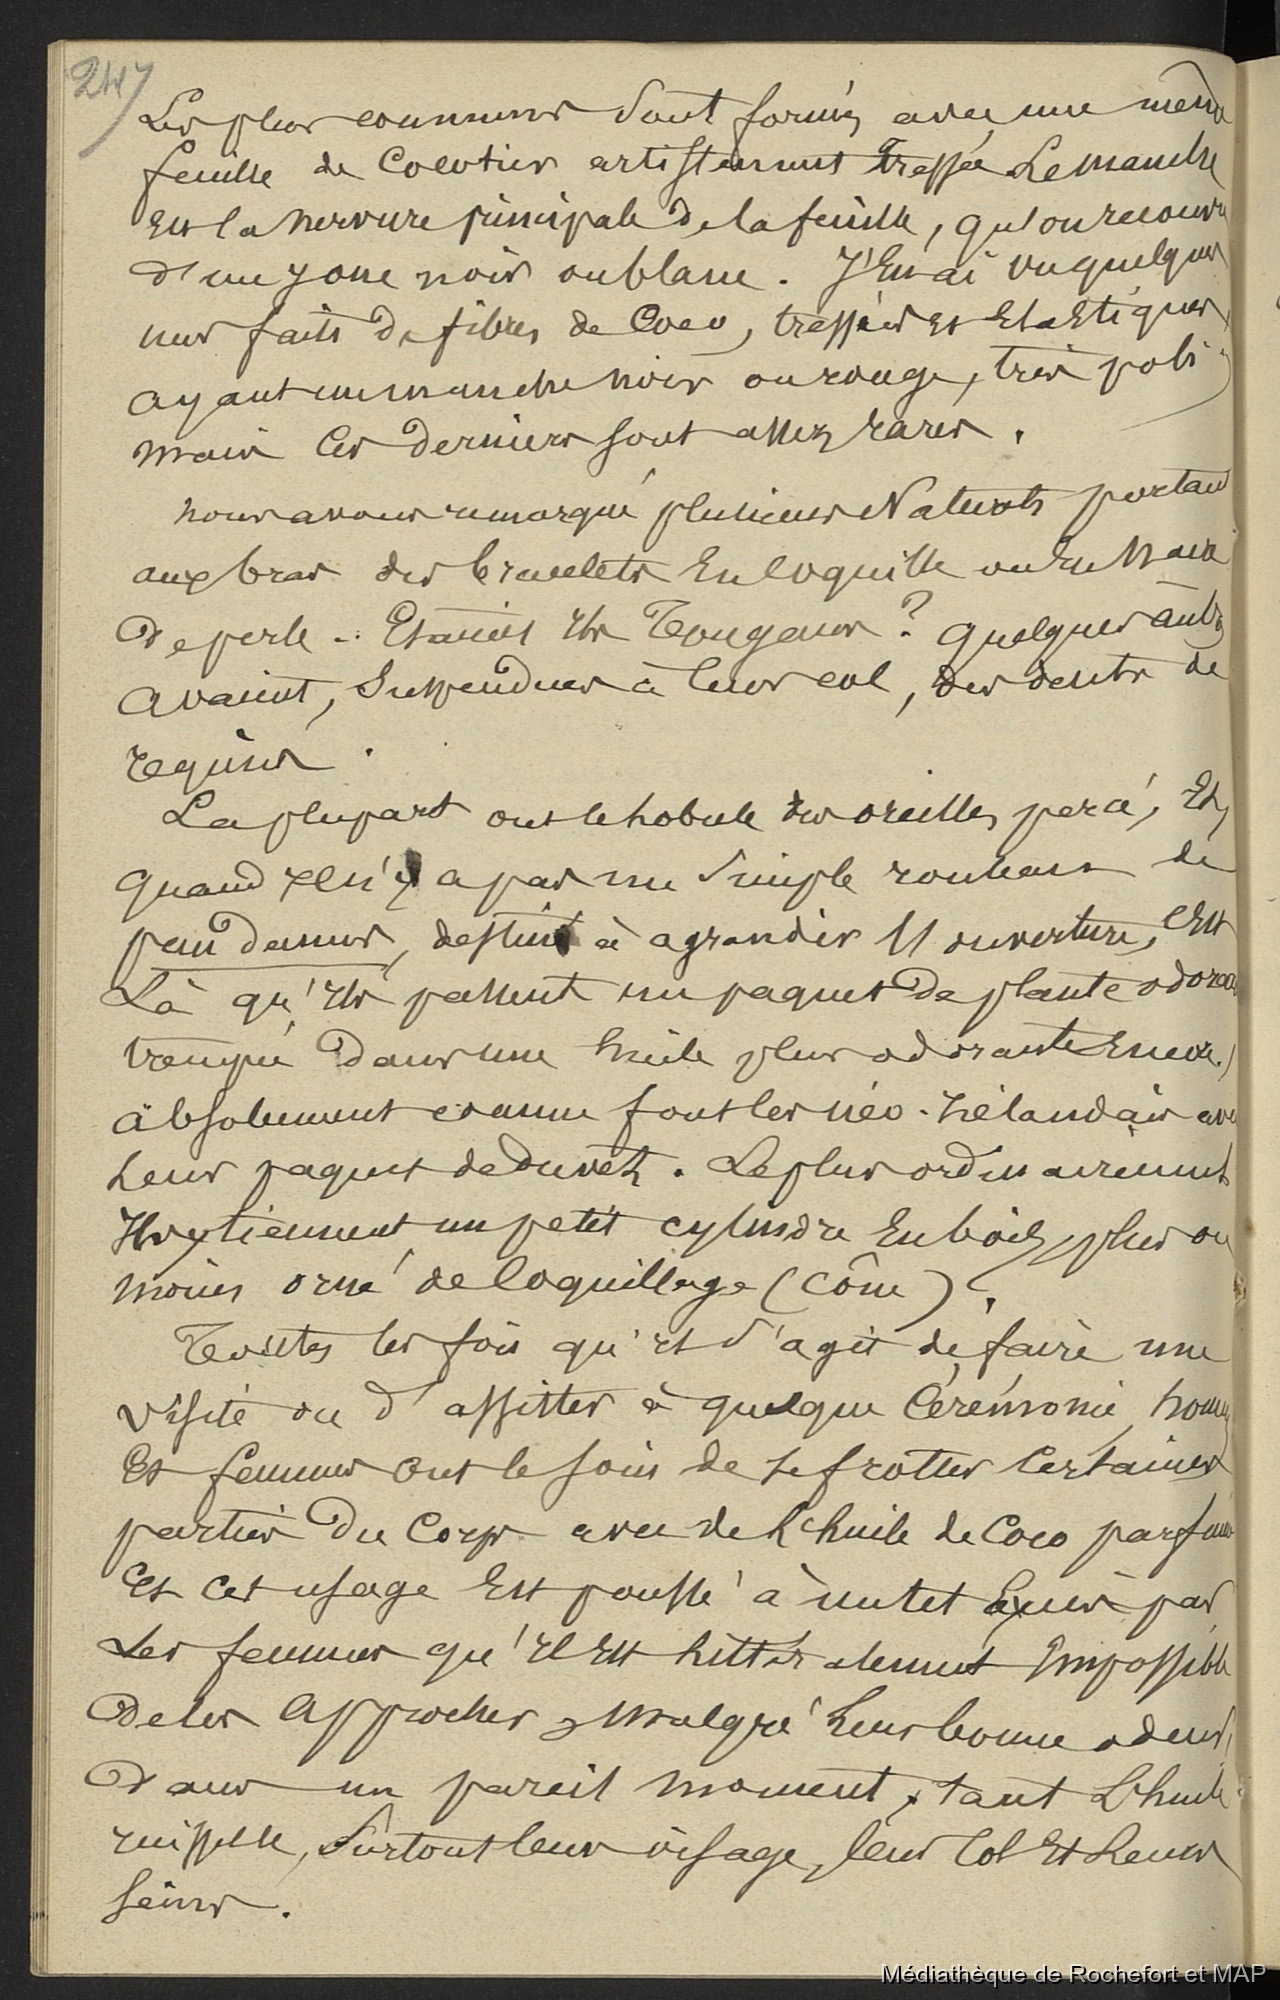 247
Les plus communs sont formés avec une même
feuille de Cocotier artistement tressée. Le manche
est la nervure principale de la feuille, qu'on recouvre
d'un jonc noir ou blanc. J'en ai vu quelques
uns faits de fibres de Coco, tressées et Elastiques,
ayant un manche noir ou rouge, très poli
mais ces derniers sont assez rares.
nous avons remarqué plusieurs Naturels portant
aux bras des bracelets En Coquille ou En Nacre
de perle .. Etaient ils Tongans ? quelques autres
avaient, suspendues à leur col, des dents de
requins.
La plupart ont le lobule des oreilles percé, Et,
quand il n'y a pas un simple rouleau de
pandanus, destiné à agrandir l'ouverture, c'est
Là qu'ils passent un paquet de plante odorante
trempé dans une huile plus odorante Encore,
absolument comme font les néo-Zélandais avec
leur paquet de duvet. Le plus ordinairement
Ils y tiennent un petit cylindre En bois, plus ou
moins orné de Coquillage (Cône).
Toutes les fois qu'il s'agit de faire une
visite ou d'assister à quelque Cérémonie, hommes
Et femmes ont le soin de se frotter Certaines
parties du Corps avec de l'huile de Coco parfumée
Et cet usage Est poussé à un tel Excès par
Les femmes qu'il Est littéralement Impossible
de les approcher, malgré leur bonne odeur,
dans un pareil moment, tant L'huile
ruisselle, surtout leur visage, leur Col Et Leurs
seins.
Médiathèque de Rochefort et MAP